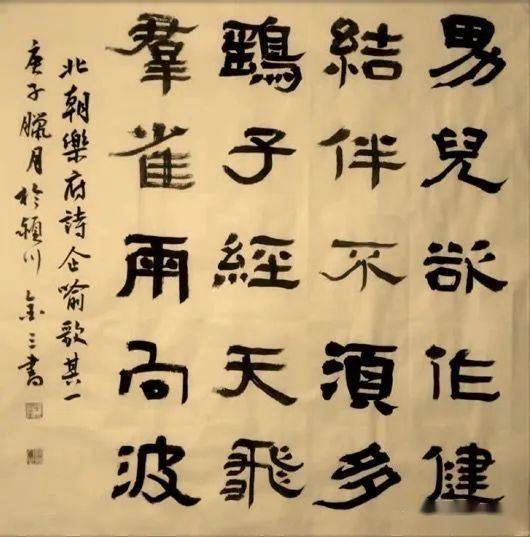 男兒欲作健
結伴不須多
鷂子經天飛
羣雀兩向波
北朝樂府詩企喻歌其一
庚子臘月於潁川金三書